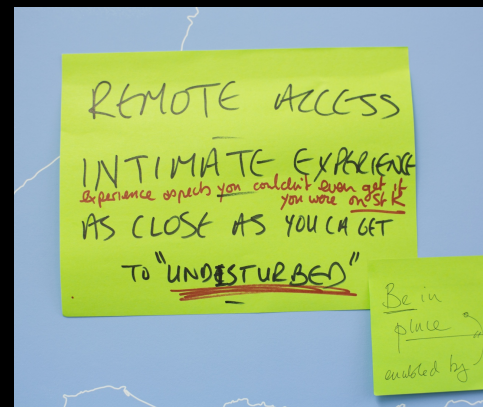 REMOTE ACCESS
INTIMATE EXPERIENCE
experience aspects you couldn't even get if
you were on St K
AS CLOSE AS YOU CA GET
TO "UNDISTURBED"
Be in
place
enabled by